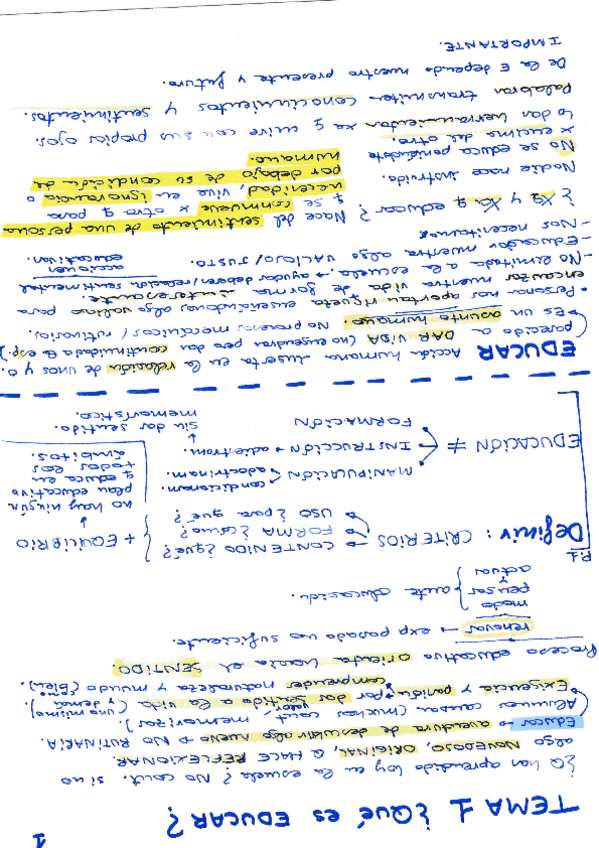 1
TEMA 1 ¿QUÉ es EDUCAR?
¿Q han aprendido hoy en la escuela? No cont. si no
algo NOVEDOSO, ORIGINAL, Q HACE REFLEXIONAR
Educar → aventura de descubrir algo nuevo → NO RUTINARIA
(Alumnos causas (muchos cont. memorizar).
Exigencia y pasión x dar sentido valor a la vida (uno mismo y demás).
↳ Para comprender naturaleza y mundo (Bien).
Proceso educativo orienta hacia el SENTIDO.
renovar → exp pasada no suficiente.
modo
pensar y actuar } ante educación.
P.1
Definir: CRITERIOS → CONTENIDO ¿qué?
FORMA ¿cómo?
USO ¿para qué?
} + EQUILIBRIO
↓
no hay ningún
plan educativo
q educa en
todos los
ámbitos.
EDUCACIÓN ≠
MANIPULACIÓN < condicionam. adoctrinam.
INSTRUCCIÓN → adiestram.
FORMACIÓN
↓
sin dar sentido.
memorístico.
EDUCAR Acción humana inserta en la relación de unos y o.
(parecido a DAR VIDA (no engendrar pero dar continuidad a esp.).
• Es un asunto humano. No proceso mecánicos / rutinarios.
• Personas nos aportan riqueza enseñándonos algo valioso para
encauzar nuestra vida de forma interesante.
- No limitada a la escuela. → ayudas / deberes sentim. relación / mental
- Educador muestra algo valioso / justo. acción educativa.
- Nos necesitamos
¿Xq y Xa q educar? Nace del sentimiento de una persona
q se conmueve x otra q para
necesidad, vive en ignorancia o
por debajo de su condición de
humano.
Nadie nace instruido.
No se educa poniéndote
x encima del otro.
Lo dan herramientas xa q mire con sus propios ojos.
Palabras transmiten conocimientos y sentimientos.
De la E depende nuestro presente y futuro.
IMPORTANTE.